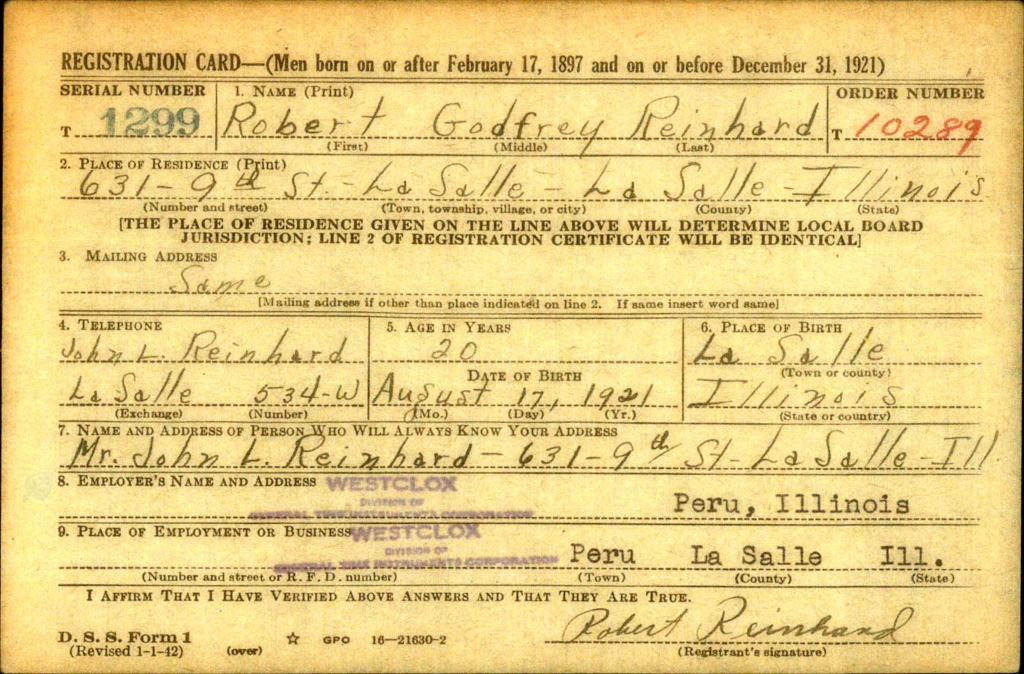 REGISTRATION CARD—(Men born on or after February 17, 1897 and on or before December 31, 1921)
SERIAL NUMBER 1. NAME (Print) ORDER NUMBER
T 1299 Robert Godfrey Reinhard T 10289
(First) (Middle) (Last)
2. PLACE OF RESIDENCE (Print)
631-9th St.-La Salle - La Salle-Illinois
(Number and street) (Town, township, village, or city) (County) (State)
[THE PLACE OF RESIDENCE GIVEN ON THE LINE ABOVE WILL DETERMINE LOCAL BOARD
JURISDICTION; LINE 2 OF REGISTRATION CERTIFICATE WILL BE IDENTICAL]
3. MAILING ADDRESS
Same
[Mailing address if other than place indicated on line 2. If same insert word same]
4. TELEPHONE 5. AGE IN YEARS 6. PLACE OF BIRTH
John L. Reinhard 20 La Salle
DATE OF BIRTH (Town or county)
La Salle 534-W August 17, 1921 Illinois
(Exchange) (Number) (Mo.) (Day) (Yr.) (State or country)
7. NAME AND ADDRESS OF PERSON WHO WILL ALWAYS KNOW YOUR ADDRESS
Mr. John L. Reinhard-631-9th St-La Salle-Ill
8. EMPLOYER'S NAME AND ADDRESS WESTCLOX
DIVISION OF Peru, Illinois
GENERAL TIME INSTRUMENTS CORPORATION
9. PLACE OF EMPLOYMENT OR BUSINESS WESTCLOX
DIVISION OF
GENERAL TIME INSTRUMENTS CORPORATION Peru La Salle Ill.
(Number and street or R. F. D. number) (Town) (County) (State)
I AFFIRM THAT I HAVE VERIFIED ABOVE ANSWERS AND THAT THEY ARE TRUE.
D. S. S. Form 1 ☆ GPO 16—21630-2 Robert Reinhard
(Revised 1-1-42) (over) (Registrant's signature)